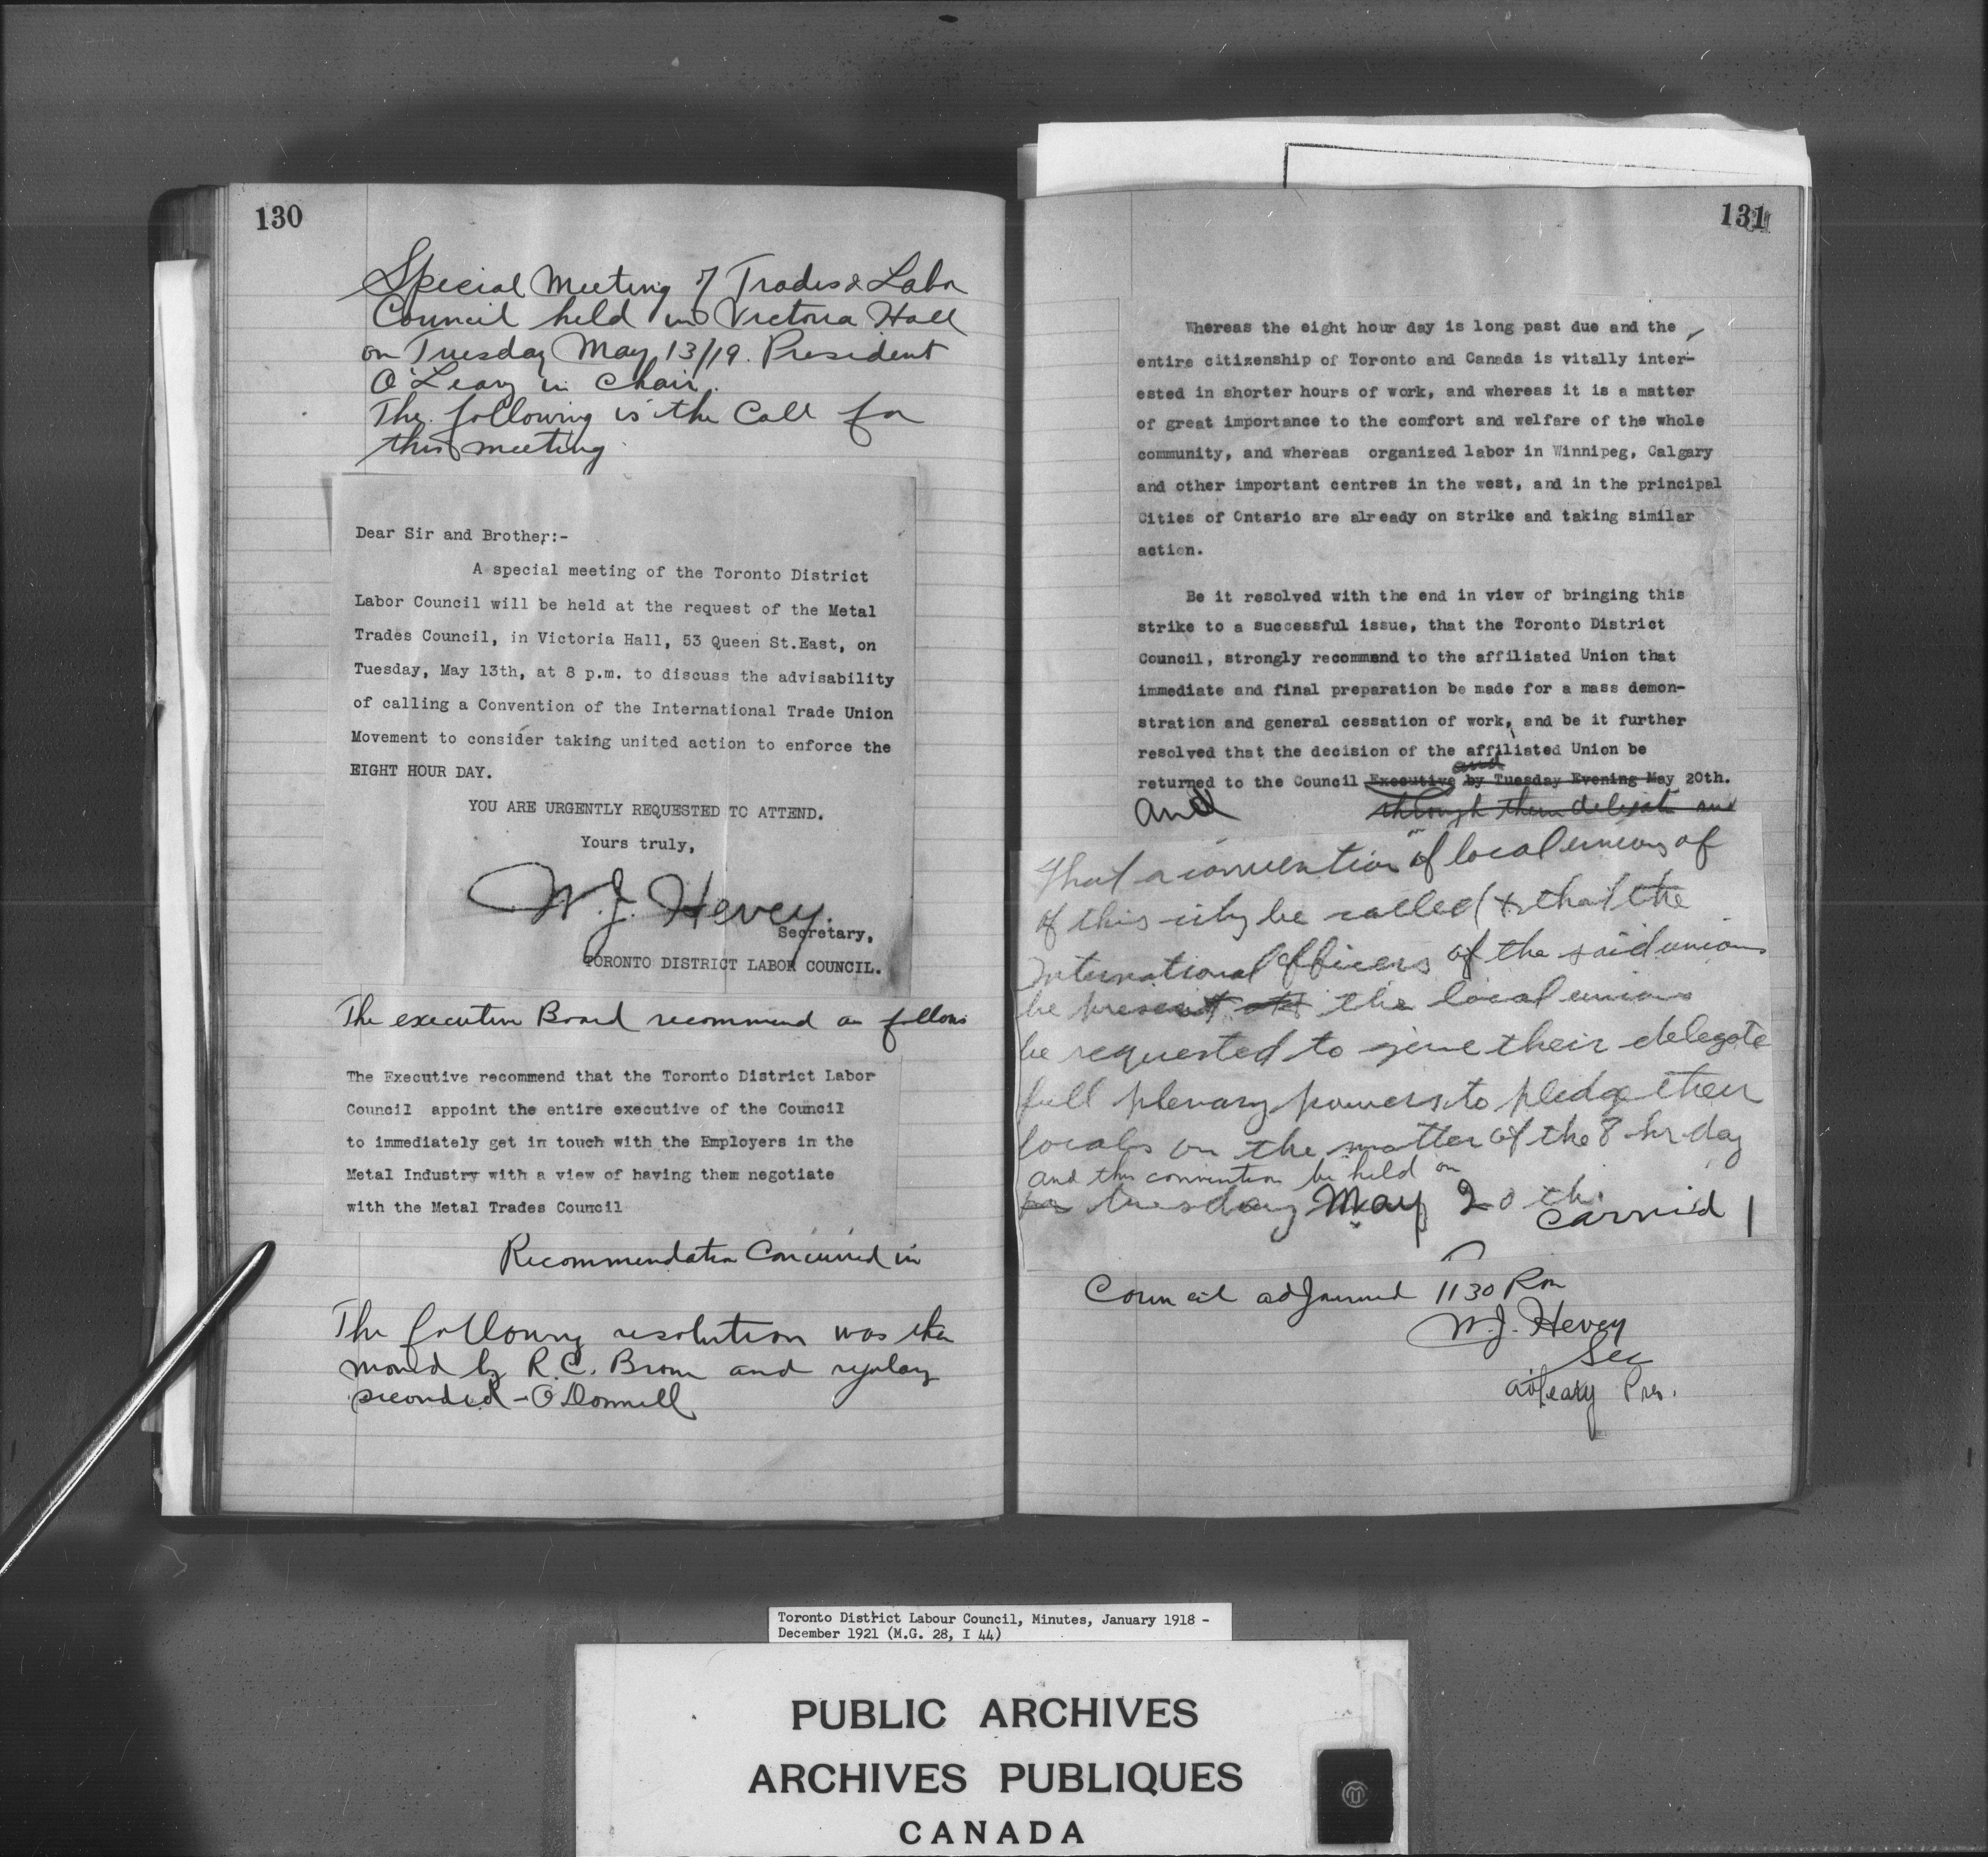 130
Special Meeting of Trades & Labor
Council held in Victoria Hall
on Tuesday May 13/19. President
O'Leary in Chair.
The following is the Call for
this meeting.
Dear Sir and Brother:-
A special meeting of the Toronto District
Labor Council will be held at the request of the Metal
Trades Council, in Victoria Hall, 53 Queen St.East, on
Tuesday, May 13th, at 8 p.m. to discuss the advisability
of calling a Convention of the International Trade Union
Movement to consider taking united action to enforce the
EIGHT HOUR DAY.
YOU ARE URGENTLY REQUESTED TO ATTEND.
Yours truly,
W.J. Hevey.
Secretary,
TORONTO DISTRICT LABOR COUNCIL.
The executive Board recommend as follows
The Executive recommend that the Toronto District Labor
Council appoint the entire executive of the Council
to immediately get in touch with the Employers in the
Metal Industry with a view of having them negotiate
with the Metal Trades Council
Recommendation Concurred in
The following resolution was then
moved by R.C. Brown and regulary
seconded - O'Donnell
131
Whereas the eight hour day is long past due and the
entire citizenship of Toronto and Canada is vitally inter-
ested in shorter hours of work, and whereas it is a matter
of great importance to the comfort and welfare of the whole
community, and whereas organized labor in Winnipeg, Calgary
and other important centres in the west, and in the principal
Cities of Ontario are already on strike and taking similar
action.
Be it resolved with the end in view of bringing this
strike to a successful issue, that the Toronto District
Council, strongly recommend to the affiliated Union that
immediate and final preparation be made for a mass demon-
stration and general cessation of work, and be it further
resolved that the decision of the affiliated Union be
and
returned to the Council Executive by Tuesday Evening May 20th.
and through them delegate and
That a convention of local unions of
of this city be called & that the
International Officers of the said unions
be present the local unions
be requested to give their delegate
full plenary powers to pledge their
locals on the matter of the 8 hr day
and this convention be held on
tuesday May 20th.
Carried
Council adjourned 1130 Pm
W.J. Hevey
Sec
O'Leary Pres.
Toronto District Labour Council, Minutes, January 1918 -
December 1921 (M.G. 28, I 44)
PUBLIC ARCHIVES
ARCHIVES PUBLIQUES
CANADA